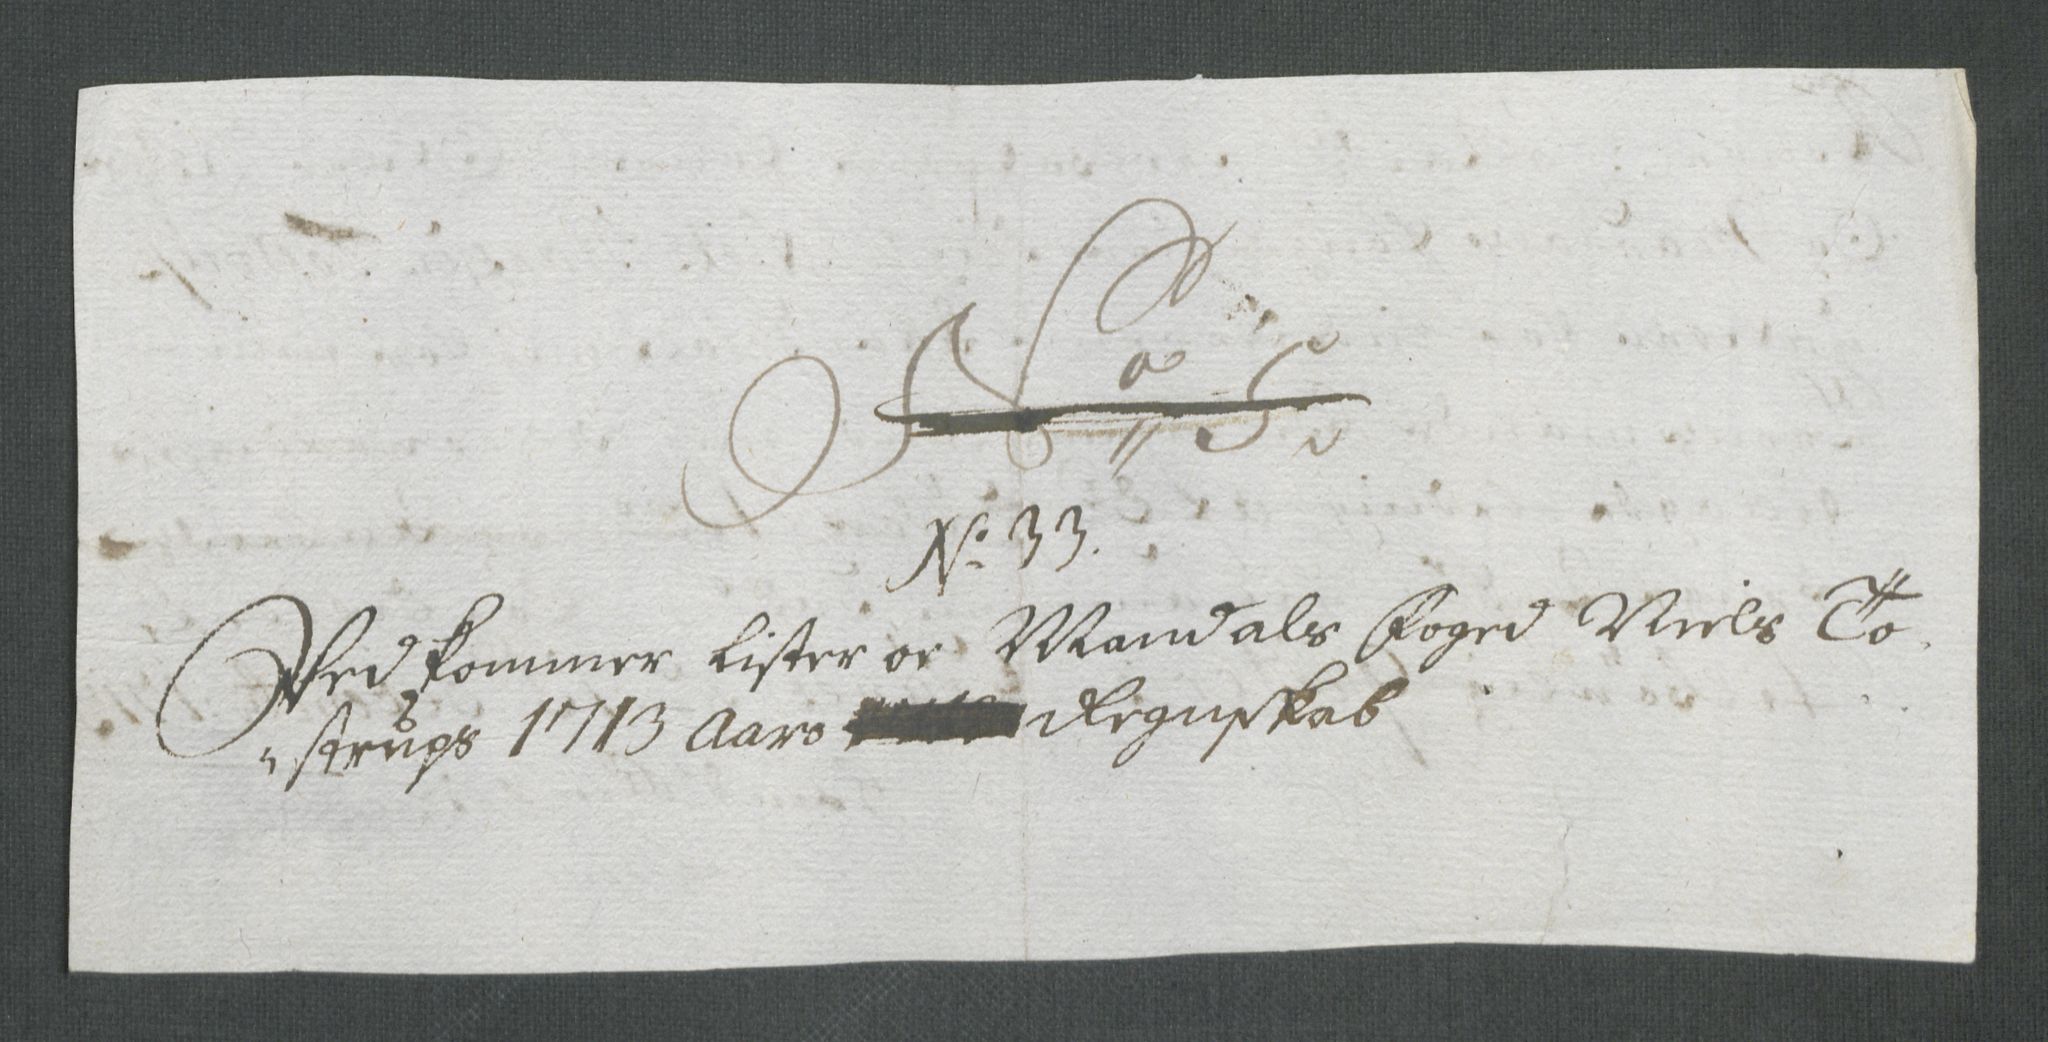 No 5
No. 33.
Ved kommer Lister oc Mandals Foged Niels To
strups 1713 Aars Regnskab